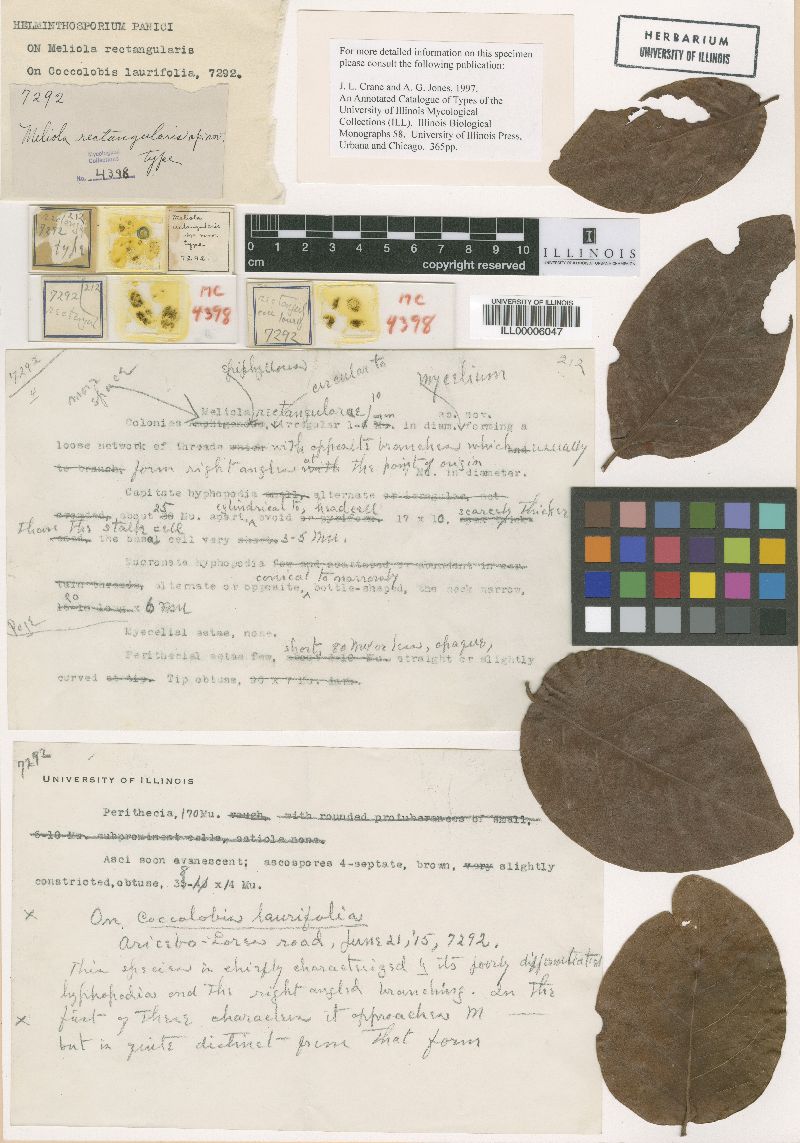 HELMINTHOSPORIUM PANICI
ON Meliola rectangularis
On Coccolobis laurifolia, 7292.
7292
Meliola rectangularis sp. nov.
type
Mycological
Collections
No. 4398
For more detailed information on this specimen
please consult the following publication:
J. L. Crane and A. G. Jones. 1997.
An Annotated Catalogue of Types of the
University of Illinois Mycological
Collections (ILL). Illinois Biological
Monographs 58. University of Illinois Press,
Urbana and Chicago. 365pp.
HERBARIUM
UNIVERSITY OF ILLINOIS
212
7292
type
Meliola
rectangularis
type
7292.
0 1 2 3 4 5 6 7 8 9 10
cm
copyright reserved
ILLINOIS
UNIVERSITY OF ILLINOIS AT URBANA-CHAMPAIGN
7292
212
MC
4398
7292
MC
4398
UNIVERSITY OF ILLINOIS
ILL00006047
7292
212
more space
epiphyllous
circular to
mycelium
Meliola rectangularae sp. nov.
Colonies amphigenous, irregular 1- mm in diam. forming a
loose network of threads which with opposite branches which usually
to branch, form right angles at with the point of origin
Mu. in diameter.
Capitate hyphopodia small, alternate or irregular, not
crowded, about 25 Mu. apart, cylindrical to ovoid head cell 17 x 10, scarcely thicker
than the stalk cell
the basal cell very short, 3-5 Mu.
Mucronate hyphopodia few and scattered or abundant in cer-
tain threads, alternate or opposite, conical to narrowly bottle-shaped, the neck narrow,
20 x 6 Mu
Page
Mycelial setae, none.
Perithecial setae few, short, 80 Mu or less, opaque, straight or slightly
curved Tip obtuse,
7292
UNIVERSITY OF ILLINOIS
Perithecia, 170 Mu. rough, with rounded protuberances of small,
6-10 Mu. subprominent cells, ostiola none.
Asci soon evanescent; ascospores 4-septate, brown, very slightly
constricted, obtuse, 38 x 14 Mu.
x On Coccolobis laurifolia
Aricebo-Lores road, June 21, '15, 7292.
This species is chiefly characterized by its poorly differentiated
hyphopodia and the right angled branching. In the
x first of these characters it approaches M —
but is quite distinct from that form